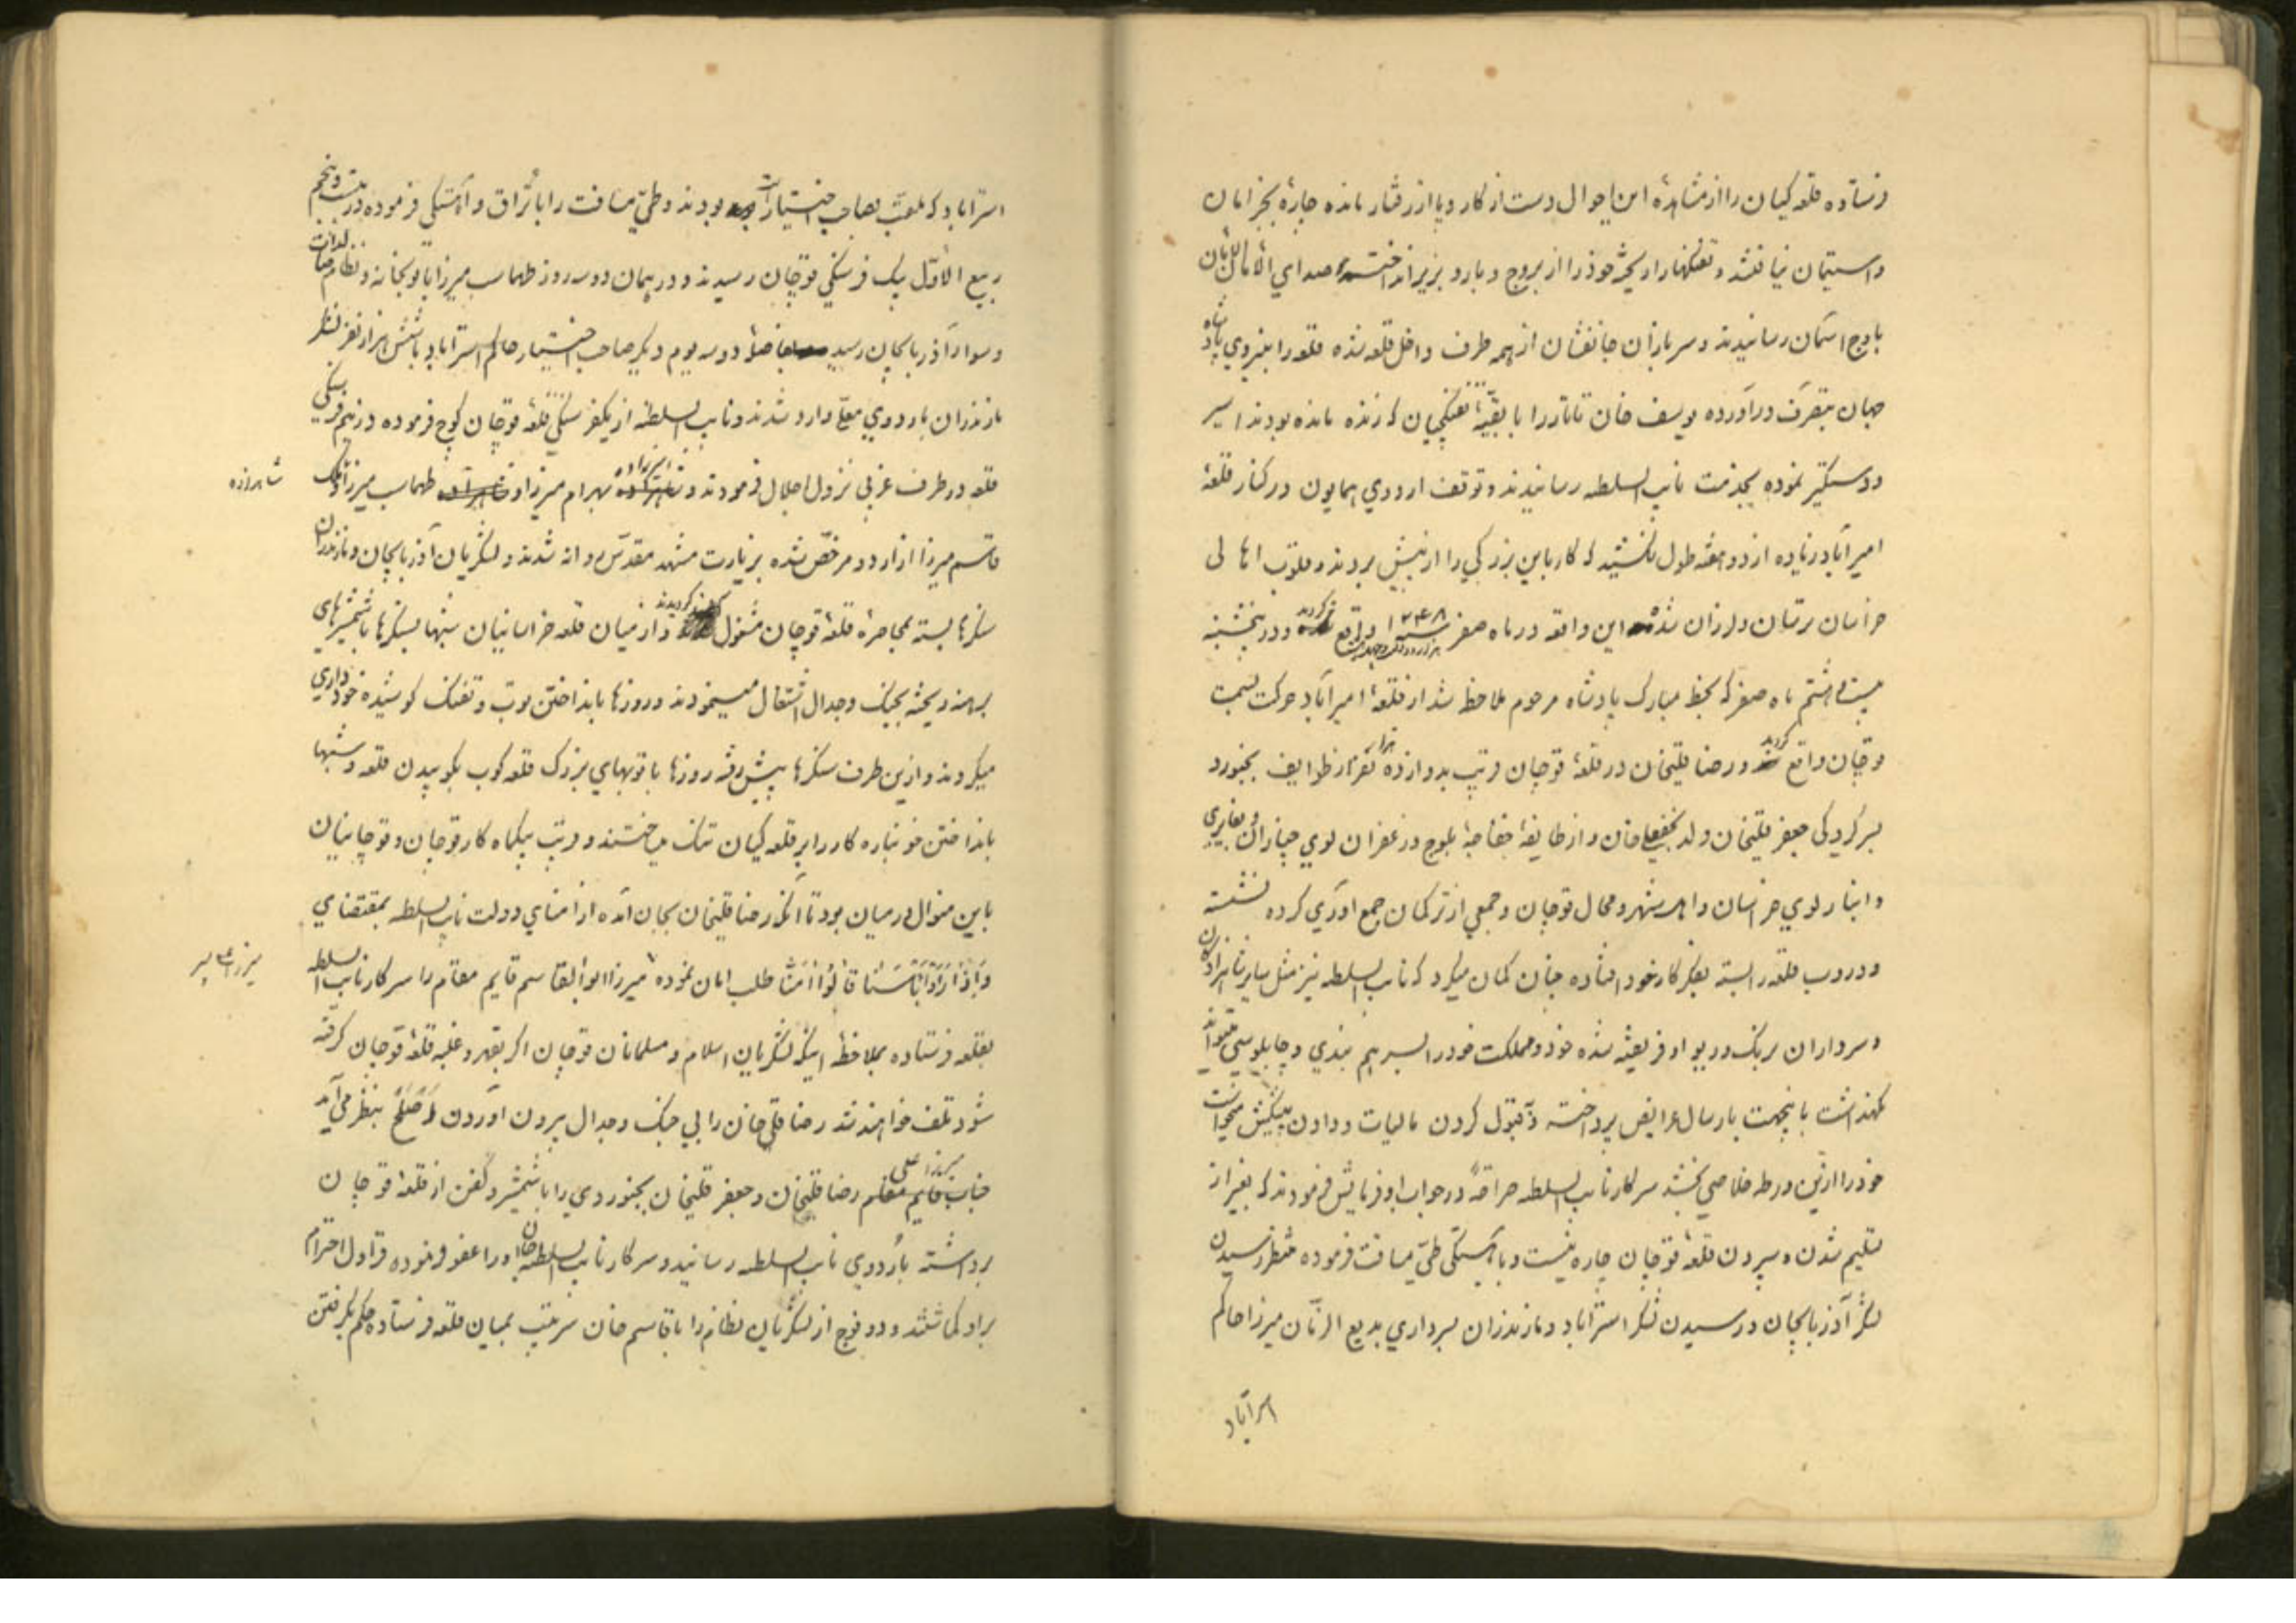 فرستاده قلعه کیان را از مشاهدهٔ این احوال دست از کار و پا از رفتار مانده چارهٔ بجز امان
و استیمان نیافتند و تفنکها را ریخته خود را از بروج و بارو بزیر انداختند صدای الامان الامان
باوج اسمان رسانیدند و سربازان جانفشان از همه طرف داخل قلعه شده قلعه را بنیروی پادشاه
جهان بتصرف درآورده یوسف خان تاتار را با بقیّه تفنکچیان که زنده مانده بودند اسیر
و دستکیر نموده بخدمت نایب السلطه رسانیدند و توقف اردوی همایون در کنار قلعهٔ
امیرآباد زیاده از دو هفته طول نکشید که کار باین بزرکی را از پیش بردند و قلوب اهالی
خراسان ترسان و لرزان شده این واقعه در ماه صفر سنه ۱۲۴۸ واقع کردید و در پنجشنبه
بیست و هشتم ماه صفر که بخط مبارک پادشاه مرحوم ملاحظه شد از قلعهٔ امیرآباد حرکت بسمت
قوچان واقع کردید و رضا قلیخان در قلعهٔ قوچان قریب بدوازده هزار نفر از طوایف بجنورد
بسرکردکی جعفر قلیخان ولد نجفعلیخان و از طایفهٔ بلوچ و زعفران لوی
خراسان و اهل شهر و محال قوچان و جمعی از ترکمان جمع اوری کرده نشسته
و دروب قلعه را بسته بفکر کار خود افتاده چنان کمان میکرد که نایب السلطه نیز مثل سایر شاهزادکان
و سرداران برنک و ریو او فریفته شده خود و مملکت خود را بسر هم بندی و چاپلوسی میتواند
نکهداشت باینجهت بارسال عرایض پرداخته و قبول کردن مالیات و دادن پیشکش میخواست
خود را ازین ورطه خلاصی بخشد سرکار نایب السلطه صراحةً در جواب او فرمایش فرمودند که بغیر از
تسلیم شدن و سپردن قلعهٔ قوچان چاره نیست و باهستکی طیّ مسافت فرموده منتظر رسیدن
لشکر آذربایجان و رسیدن لشکر استراباد و مازندران بسرداری بدیع الزمّان میرزا حاکم
استرآباد
استراباد که ملقّب بصاحب اختیار بودند و طیّ مسافت را با و آهستکی فرموده در بیست و پنجم
ربیع الاوّل بیک فرسنکی قوچان رسیدند و در همان دو سه روز طهماسب میرزا با توپخانه و نظام
و سوار آذربایجان رسید بفاصلهٔ دو سه یوم دیکر صاحب اختیار حاکم استراباد با شش هزار نفر لشکر
مازندران باردوی معلّی وارد شدند و نایب السلطنه از یکفرسنکی قلعهٔ قوچان کوچ فرموده در نیم فرسنکی
قلعه در طرف غربی نزول اجلال فرمودند و بهرام میرزا و طهماسب میرزا و ملک
شاهزاده
قاسم میرزا از اردو مرخّص شده بزیارت مشهد مقدّس روانه شدند و لشکریان آذربایجان و مازندران
سنکرها بسته بمحاصرهٔ قلعهٔ قوچان مشغول کردیدند و از میان قلعه خراسانیان شبها بسنکرها با شمشیرهای
برهنه ریخته بجنک و جدال اشتغال مینمودند و روزها بانداختن توپ و تفنک کوشیده خودداری
میکردند و ازین طرف سنکرها پیش رفته روزها با توپهای بزرک قلعه کوب بکوبیدن قلعه و شبها
بانداختن خونپاره کار را بر قلعه کیان تنک میساختند و قریب بیکماه کار قوچان و قوچانیان
باین منوال در میان بود تا آنکه رضا قلیخان بجان آمده از امنای دولت نایب السلطه بمقتضای
قالُوا آمَنّا طلب امان نموده میرزا ابوالقاسم قایم مقام را سرکار نایب السلطه
بقلعه فرستاده بملاحظهٔ اینکه لشکریان اسلام و مسلمانان قوچان اکر بقهر و غلبه قلعهٔ قوچان کرفته
شود تلف خواهند شد رضا قلی خان را بی جنک و جدال بیرون اوردن اَصلَح بنظر می آید
جناب قایم مقام رضا قلیخان و جعفر قلیخان بجنوردی را با شمشیر و کفن از قلعهٔ قوچان
برداشته باردوی نایب السلطه رسانید و سرکار نایب السلطه اورا عفو فرموده قراول احترام
براو کماشتند و دو فوج از لشکریان نظام را با قاسم خان سرتیب بمیان قلعه فرستاده حکم بکرفتن